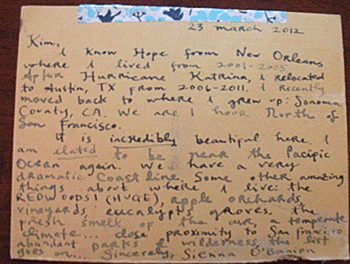 23 march 2012
Kim,
I know Hope from New Orleans
where I lived from 2001-2005.
After Hurricane Katrina, I relocated
to Austin, TX from 2006-2011. I recently
moved back to where I grew up: Sonoma
County, CA. We are 1 hour North of
San Francisco.
It is incredibly beautiful here. I
am elated to be near the Pacific
Ocean again. We have a very
dramatic Coast line. Some other amazing
things about where I live: the
REDWOODS! (HUGE), apple orchards,
vineyards, eucalyptus groves, the
fresh smell of the air, a temperate
climate.... close proximity to San Francisco,
abundant parks & wilderness the list
goes on... Sincerely, Sienna O'Bannon